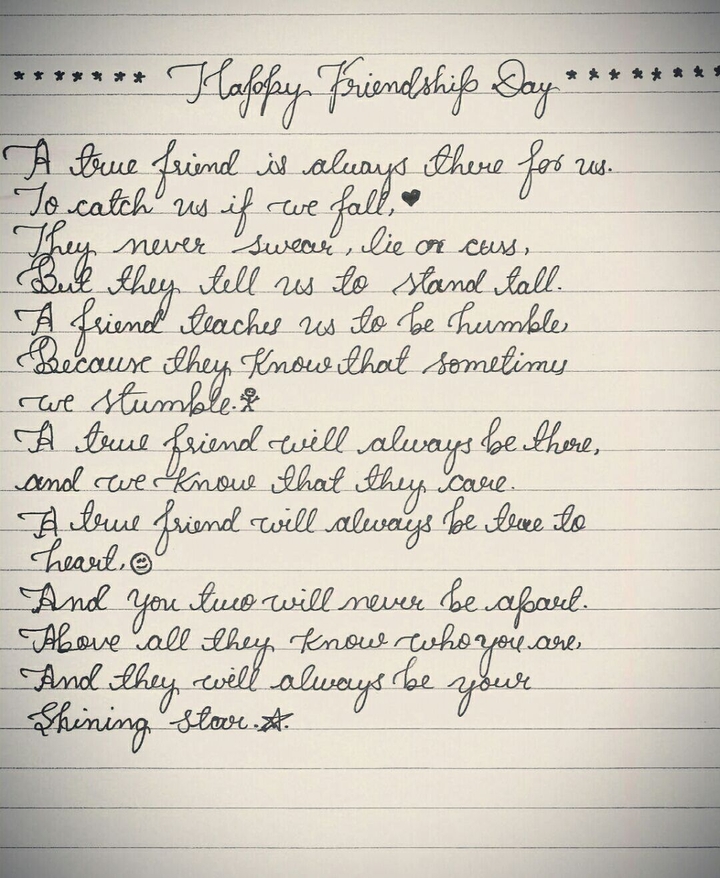 ******* Happy Friendship Day ********
A true friend is always there for us.
To catch us if we fall, ♥
They never swear, lie or cuss,
But they tell us to stand tall.
A friend teaches us to be humble,
Because they know that sometimes
we stumble.
A true friend will always be there,
and we know that they care.
A true friend will always be true to
heart, ☺
And you two will never be apart.
Above all they know who you are,
And they will always be your
Shining star.☆.